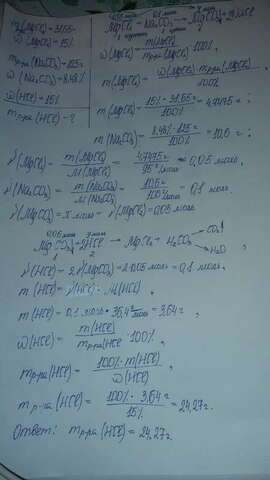 m(MgCl₂)=31,65г
w(MgCl₂)=15%
mр-ра(Na₂CO₃)=125г
w(Na₂CO₃)=8,48%
w(HCl)=15%
mр-ра(HCl)-?
MgCl₂ + Na₂CO₃ → MgCO₃↓ + 2NaCl
w(MgCl₂) = m(MgCl₂) / mр-ра(MgCl₂) · 100%
m(MgCl₂) = w(MgCl₂) · mр-ра(MgCl₂) / 100%
m(MgCl₂) = 15% · 31,65г / 100% = 4,7475г;
m(Na₂CO₃) = 8,48% · 125г / 100% = 10,6г;
ν(MgCl₂) = m(MgCl₂) / M(MgCl₂) = 4,7475г / 95 г/моль = 0,05 моль,
ν(Na₂CO₃) = m(Na₂CO₃) / M(Na₂CO₃) = 10,6г / 106 г/моль = 0,1 моль.
ν(MgCO₃) = x моль = ν(MgCl₂) = 0,05 моль
0,05 моль y моль
MgCO₃ + 2HCl → MgCl₂ + H₂CO₃ CO₂↑
1 2 H₂O
ν(HCl) = 2ν(MgCO₃) = 2·0,05 моль = 0,1 моль.
m(HCl) = ν(HCl) · M(HCl),
m(HCl) = 0,1 моль · 36,4 г/моль = 3,64г,
w(HCl) = m(HCl) / mр-ра(HCl) · 100%
mр-ра(HCl) = 100% · m(HCl) / w(HCl),
mр-ра(HCl) = 100% · 3,64г / 15% = 24,27г.
Ответ: mр-ра(HCl) = 24,27г.